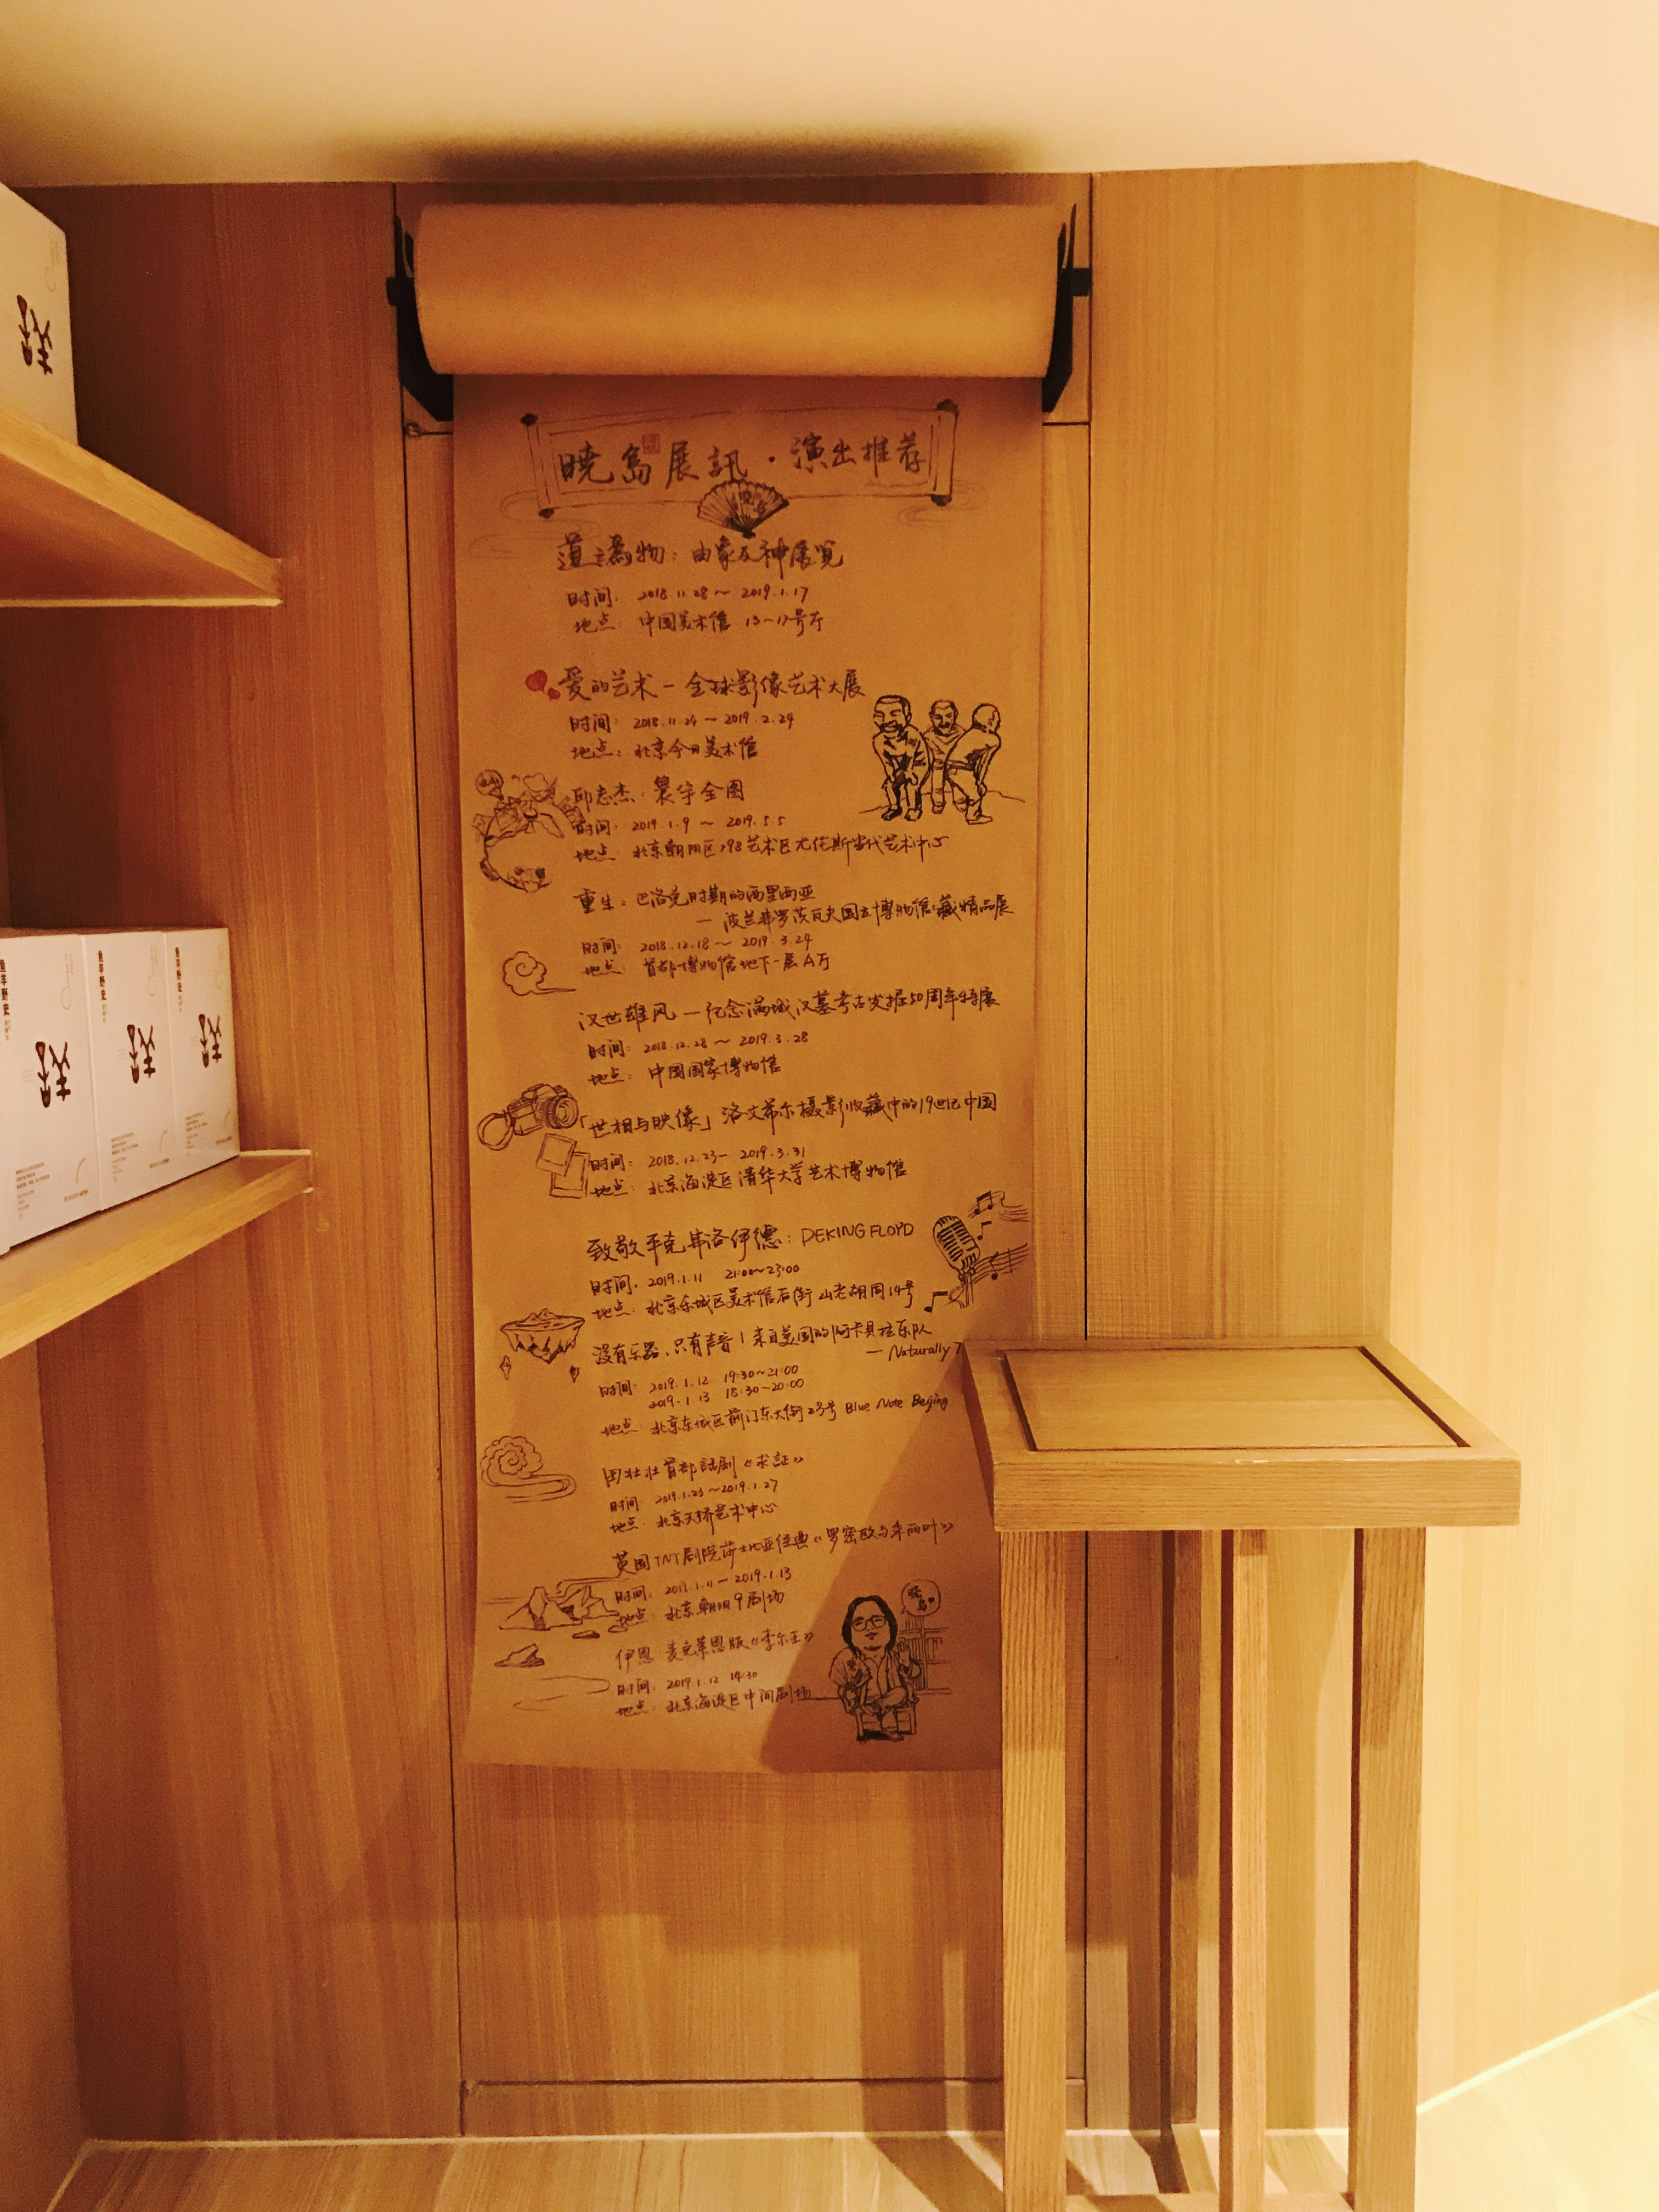 曉島展訊·演出推荐
道之為物：由象及神展览
时间：2018.11.28～2019.1.17
地点：中国美术馆 13～17号厅
爱的艺术—全球影像艺术大展
时间：2018.11.24～2019.2.24
地点：北京今日美术馆
邱志杰：寰宇全图
时间：2019.1.9～2019.5.5
地点：北京朝阳区798艺术区尤伦斯当代艺术中心
重生：巴洛克时期的西里西亚
—波兰弗罗茨瓦夫国立博物馆藏精品展
时间：2018.12.18～2019.3.24
地点：首都博物馆地下一层A厅
汉世雄风—纪念满城汉墓考古发掘50周年特展
时间：2018.12.28～2019.3.28
地点：中国国家博物馆
「世相与映像」洛文希尔摄影收藏中的19世纪中国
时间：2018.12.23—2019.3.31
地点：北京海淀区清华大学艺术博物馆
致敬平克弗洛伊德：PEKING FLOYD
时间：2019.1.11 21:00～23:00
地点：北京东城区美术馆后街山老胡同14号
没有乐器，只有声音！来自美国的阿卡贝拉乐队
—Naturally 7
时间：2019.1.12 19:30～21:00
2019.1.13 18:30～20:00
地点：北京东城区前门东大街23号 Blue Note Beijing
田壮壮首部話劇《求証》
时间：2019.1.23～2019.1.27
地点：北京天桥艺术中心
英国TNT剧院莎士比亚经典《罗密欧与朱丽叶》
时间：2019.1.11—2019.1.13
地点：北京朝阳9剧场
伊恩·麦克莱恩版《李尔王》
时间：2019.1.12 14:30
地点：北京海淀区中间剧场
曉島
鱼羊野史